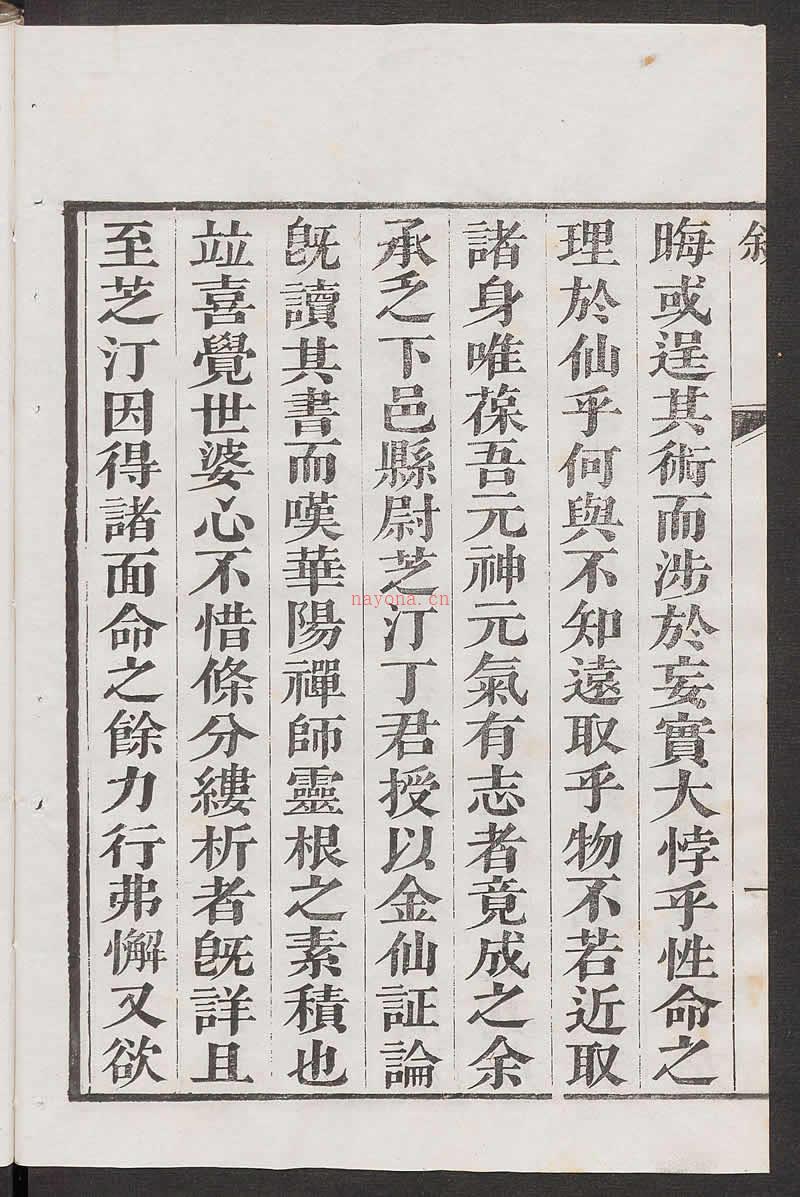 晦或逞其術而涉於妄實大悖乎性命之
理於仙乎何與不知遠取乎物不若近取
諸身唯葆吾元神元氣有志者竟成之余
承乏下邑縣尉芝汀丁君授以金仙証論
旣讀其書而嘆華陽禪師靈根之素積也
竝喜覺世婆心不惜條分縷析者旣詳且
至芝汀因得諸面命之餘力行弗懈又欲
nayona.cn